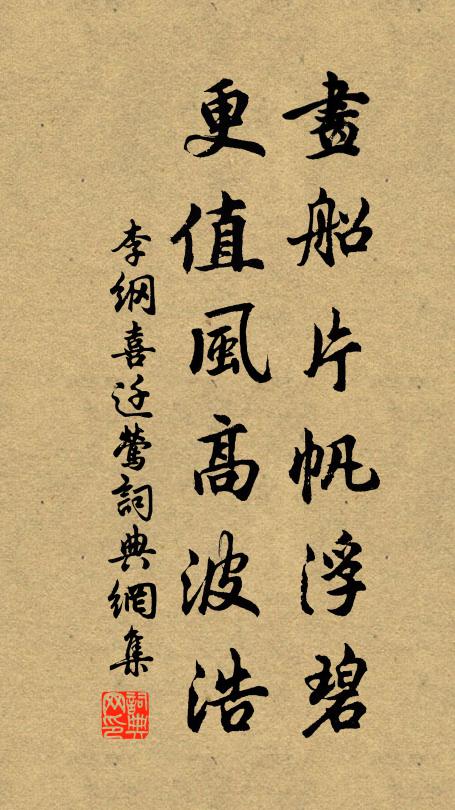 畫船片帆浮碧
更值風高波浩
李綱喜迁鶯詞典網集
詞典网印